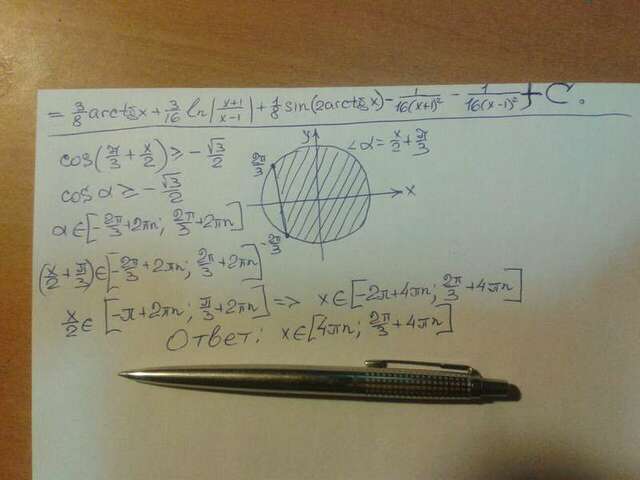 = 3/8 arctg x + 3/16 ln|x+1/x-1| + 1/8 sin(2arctg x) - 1/16(x+1)² - 1/16(x-1)² + C.
cos(π/3 + x/2) ≥ - √3/2
y
∠α = x/2 + π/3
2π/3
x
cos α ≥ - √3/2
α ∈ [-2π/3 + 2πn; 2π/3 + 2πn]
-2π/3
(x/2 + π/3) ∈ [-2π/3 + 2πn; 2π/3 + 2πn]
x/2 ∈ [-π + 2πn; π/3 + 2πn] => x ∈ [-2π + 4πn; 2π/3 + 4πn]
Ответ: x ∈ [4πn; 2π/3 + 4πn]